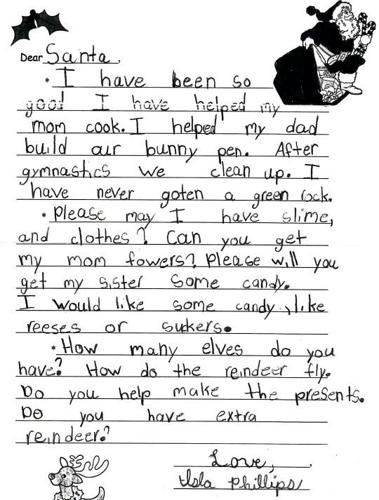 Dear Santa,
• I have been so
good I have helped my
mom cook. I helped my dad
build our bunny pen. After
gymnastics we clean up. I
have never goten a green rock.
• Please may I have slime,
and clothes? Can you get
my mom fowers? Please will you
get my sister some candy.
I would like some candy, like
reeses or suckers.
• How many elves do you
have? How do the reindeer fly.
Do you help make the presents.
Do you have extra
reindeer?
Love,
Isla Phillips